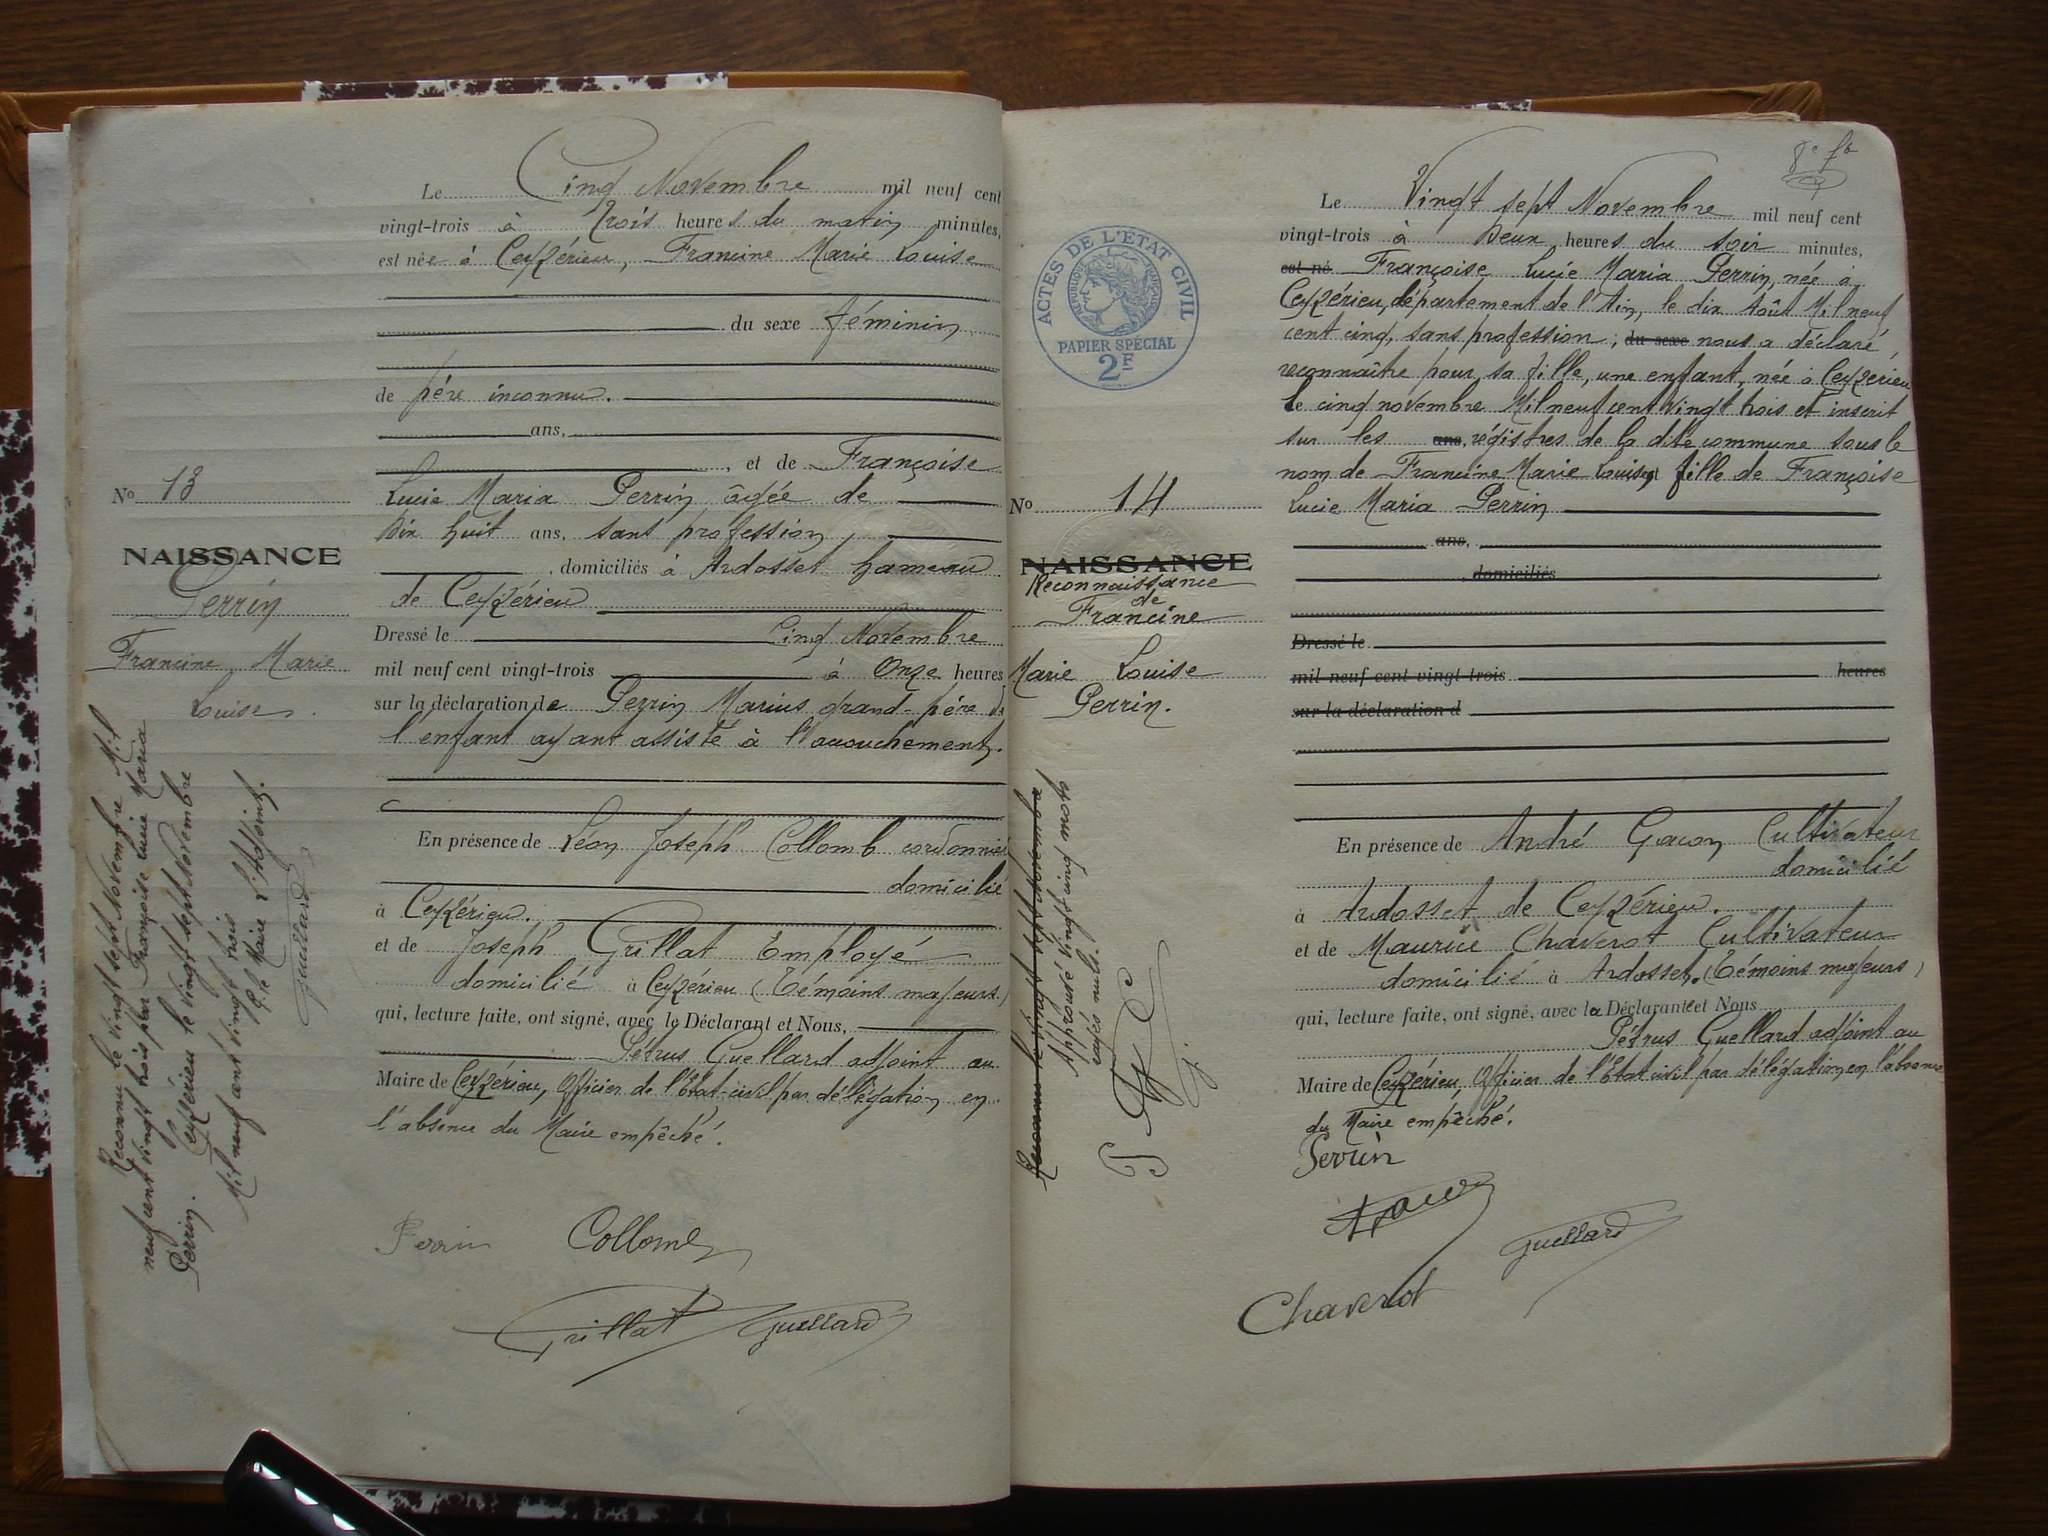 Le Cinq Novembre mil neuf cent
vingt-trois à Trois heures du matin minutes,
est née à Ceyzérieu, Francine Marie Louise
du sexe féminin
de père inconnu.
ans,
, et de Françoise
Lucie Maria Perrin âgée de
Dix huit ans, sans profession,
, domiciliés à Ardosset hameau
de Ceyzérieu
Dressé le Cinq Novembre
mil neuf cent vingt-trois à Onze heures
sur la déclaration de Perrin Marius grand-père de
l'enfant ayant assisté à l'accouchement.
En présence de Léon Joseph Collomb cordonnier
domicilié
à Ceyzérieu.
et de Joseph Grillat Employé
domicilié à Ceyzérieu (Témoins majeurs)
qui, lecture faite, ont signé, avec le Déclarant et Nous,
Pétrus Guellard adjoint au
Maire de Ceyzérieu, Officier de l'Etat-civil par délégation en
l'absence du Maire empêché.
Perrin Collomb
Grillat Guellard
No 13
NAISSANCE
Perrin
Francine Marie
Louise.
Reconnu le vingt sept Novembre Mil
neuf cent vingt trois par Françoise Lucie Maria
Perrin. Ceyzérieu le vingt sept Novembre
Mil neuf cent vingt trois
P. le Maire L'Adjoint.
Guellard
8e fo
ACTES DE L'ÉTAT CIVIL
RÉPUBLIQUE FRANÇAISE
PAPIER SPÉCIAL
2F
No 14
NAISSANCE
Reconnaissance
de
Francine
Marie Louise
Perrin.
Reconnu le vingt sept Novembre
Approuvé vingt cinq mots
rayés nuls.
Le Vingt sept Novembre mil neuf cent
vingt-trois à Deux heures du soir minutes,
est né Françoise Lucie Maria Perrin, née à
Ceyzérieu, département de l'Ain, le dix Août Mil neuf
cent cinq, sans profession, du sexe nous a déclaré
reconnaître pour sa fille, une enfant, née à Ceyzérieu
le cinq novembre Mil neuf cent vingt trois et inscrit
sur les ans, régistres de la dite commune sous le
nom de Francine Marie Louise, fille de Françoise
Lucie Maria Perrin
ans,
, domiciliés
Dressé le
mil neuf cent vingt-trois heures
sur la déclaration d
En présence de André Gacon Cultivateur
domicilié
à Ardosset de Ceyzérieu.
et de Maurice Chaverot Cultivateur
domicilié à Ardosset, (Témoins majeurs)
qui, lecture faite, ont signé, avec la Déclarante et Nous
Pétrus Guellard adjoint au
Maire de Ceyzérieu, Officier de l'Etat civil par délégation en l'absence
du Maire empêché.
Perrin
Gacon
Guellard
Chaverot